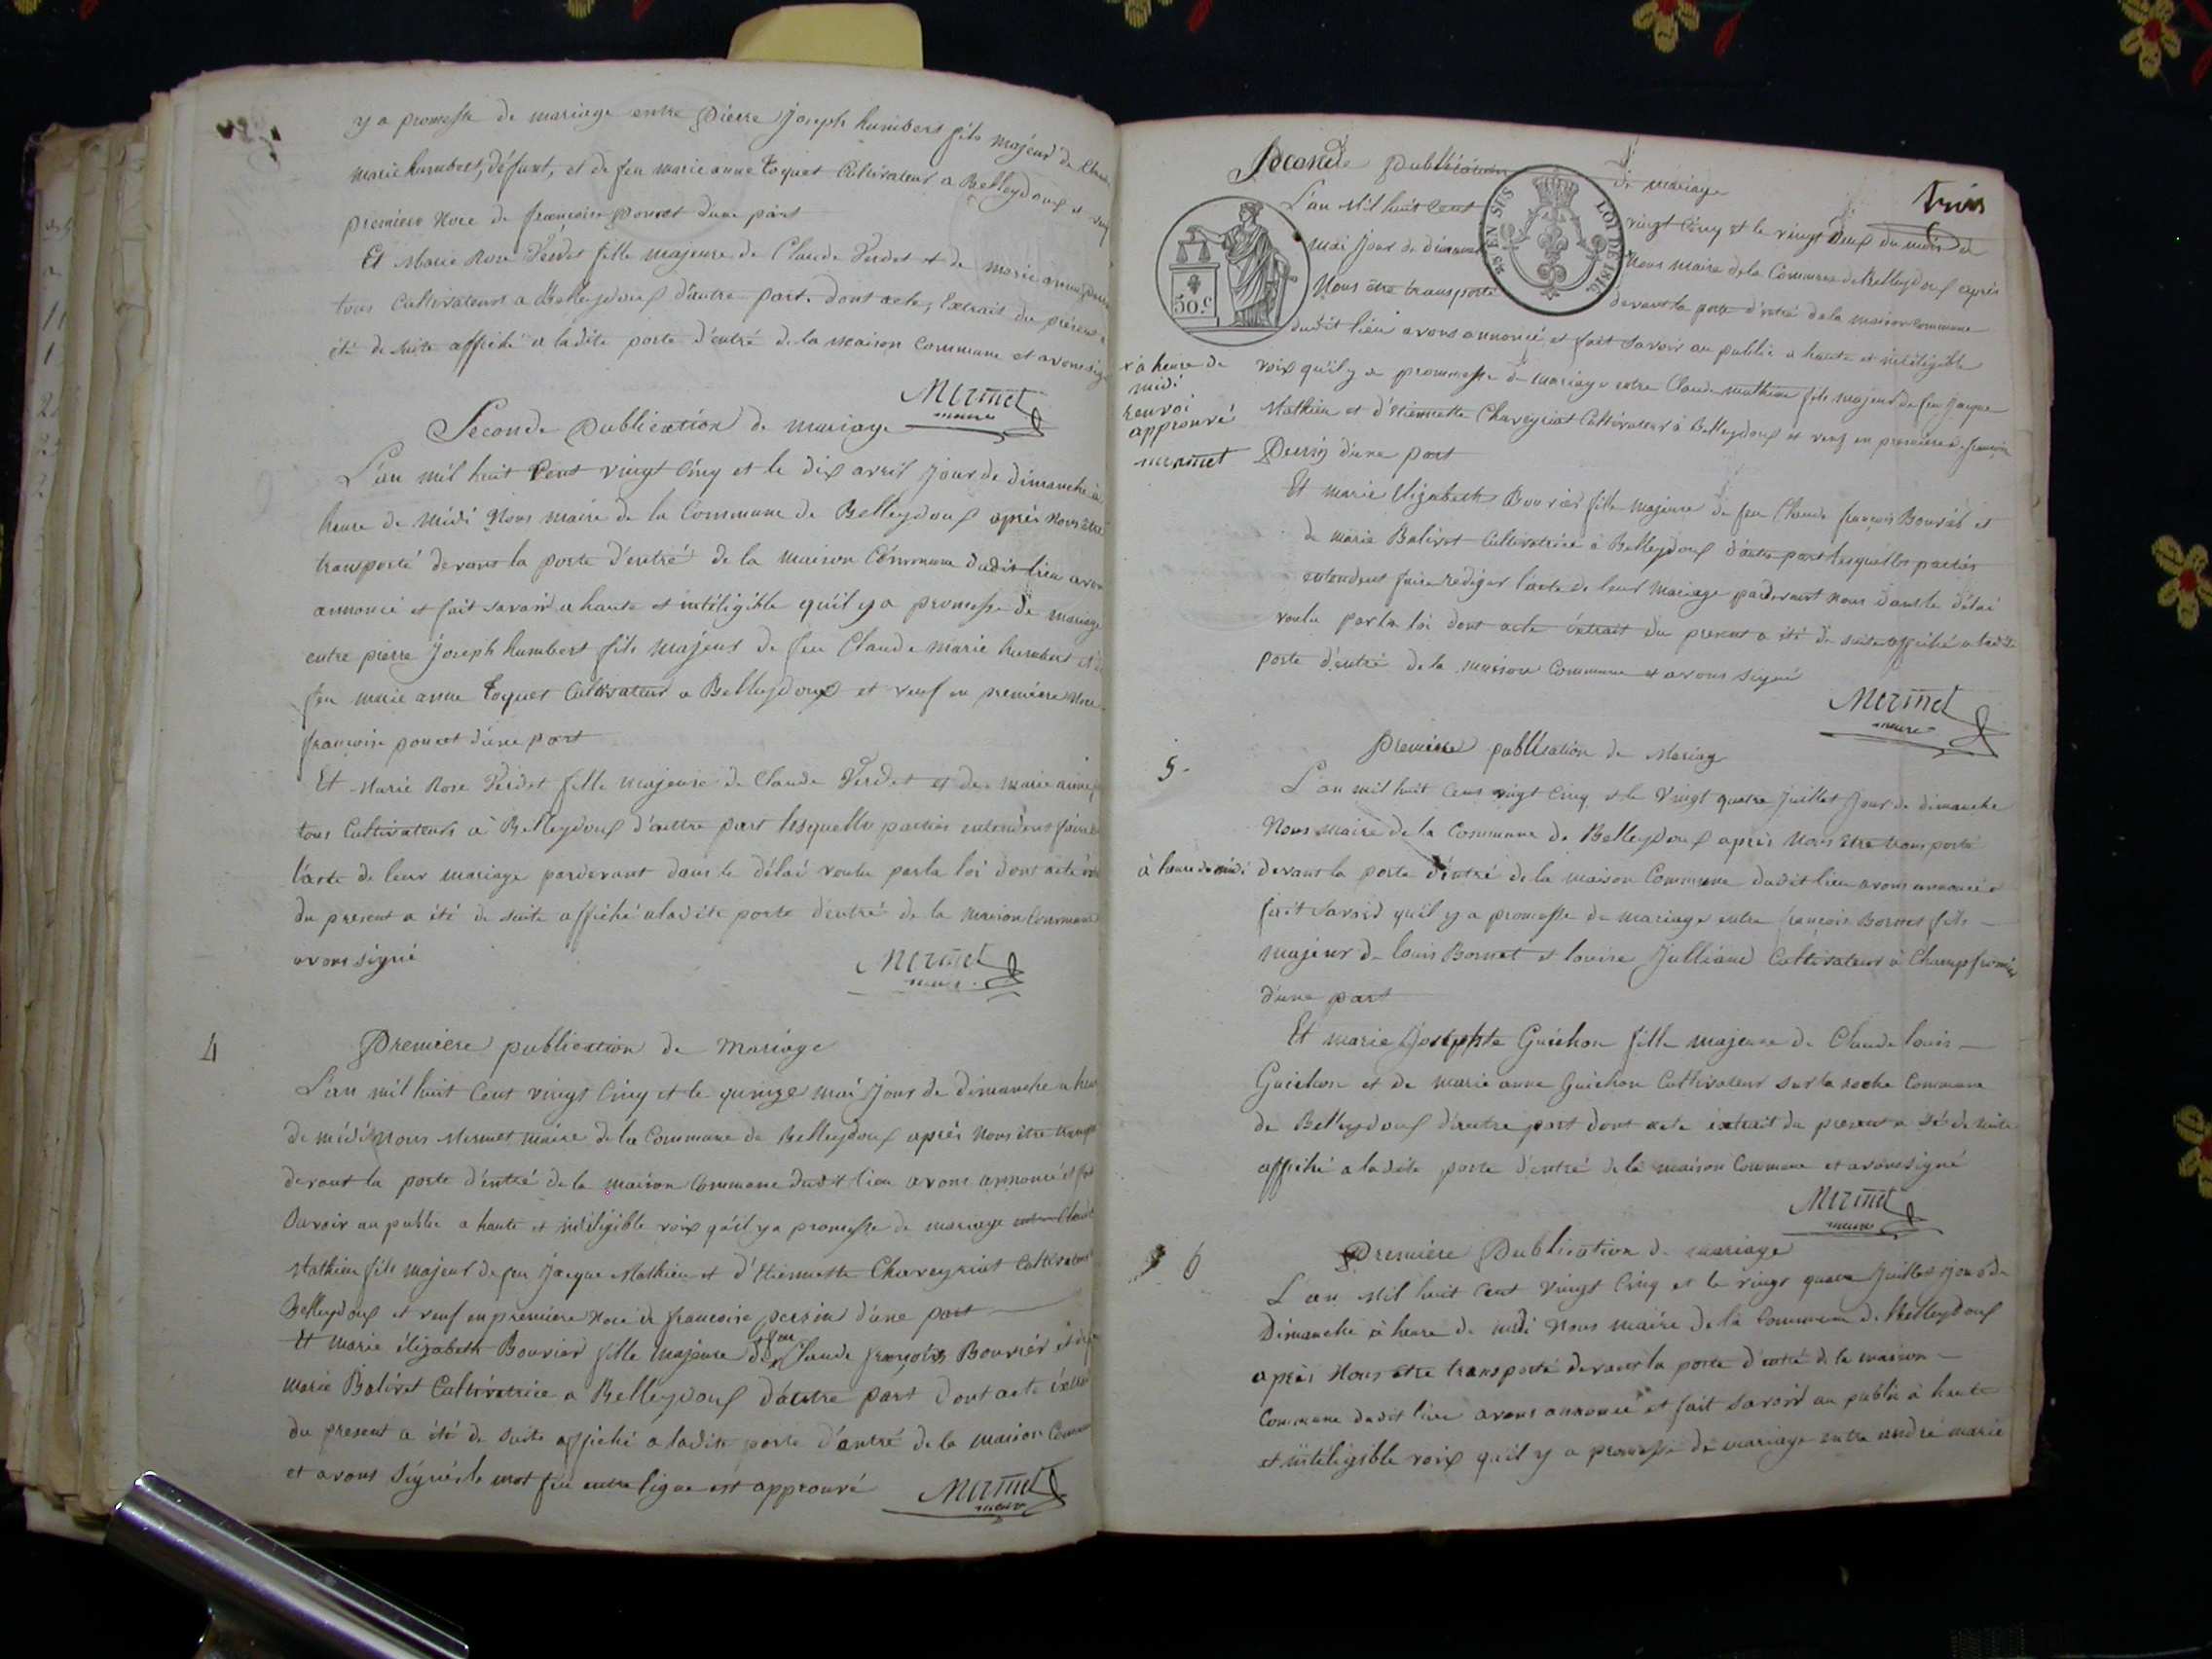 y a promesse de mariage entre Pierre Joseph humbert fils majeur de
marie humbert, défunt, et de feu marie anne toquet Cultivateur a Belleydoux et
premiere Noce de françoise Poncet d'une part
Et Marie Rose Verdet fille majeure de Claude Verdet et de marie anne
tous Cultivateurs a Belleydoux d'autre part. dont acte, Extrait du présent a
été de suite affiché a ladite porte d'entré de la maison Commune et avons
Mermet
maire
Seconde publication de mariage
L'an mil huit Cent vingt Cinq et le dix avril Jour de dimanche à
heure de Midi Nous maire de la Commune de Belleydoux après Nous être
transporté devant la porte d'entré de la maison Commune dudit lieu
annoncé et fait savoir a haute et intéligible qu'il y a promesse de mariage
entre pierre Joseph humbert fils majeur de feu Claude Marie humbert
feu marie anne toquet Cultivateur a Belleydoux et veuf en premiere Noce
françoise poncet d'une part
Et Marie Rose Verdet fille majeure de Claude Verdet et de marie anne
tous Cultivateurs a Belleydoux d'autre part lesquelles parties entendent faire
l'acte de leur mariage pardevant dans le délai voulu par la loi dont acte
du present a été de suite affiché a ladite porte d'entré de la maison Commune
avons signé
Mermet
maire
4
Premiere publication de Mariage
L'an mil huit Cent vingt Cinq et le quinze mai Jour de dimanche a
de midi Nous Mermet maire de la Commune de Belleydoux après Nous être
devant la porte d'entré de la maison Commune dudit lieu avons annoncé et
Savoir au public a haute et intéligible voix qu'il y a promesse de mariage entre
Mathieu fils majeur de feu Jacque Mathieu et d'Etiennette Chaveyriat Cultivateur
Belleydoux et veuf en premiere Noce de françoise persin d'une part
feu
Et marie élizabeth Bouvier fille majeure de Claude françois Bouvier et de
marie Balivet Cultivatrice a Belleydoux d'autre part Dont acte
du present a été de suite affiché a ladite porte d'entré de la maison
et avons Signé le mot feu entre ligne est approuvé
Mermet
maire
trois
Seconde publication de mariage
L'an Mil huit Cent vingt Cinq et le vingt Deux du mois de
mai Jour de dimanche Nous maire de la Commune de Belleydoux après
Nous être transporté devant la porte d'entré de la maison commune
50.c
EN SUS
LOI DE 1816
dudit lieu avons annoncé et fait Savoir au public a haute et intéligible
x à heure de
midi
renvoi
approuvé
mermet
voix qu'il y a prommesse de mariage entre Claude mathieu fils majeur de feu Jacque
Mathieu et d'etiennette Chaveyriat Cultivateur à Belleydoux et veuf en premiere
Persin d'une part
Et marie Elizabeth Bouvier fille majeure de feu Claude françois Bouvier et
de marie Balivet Cultivatrice à Belleydoux d'autre part lesquelles parties
entendent faire rediger l'acte de leur Mariage pardevant nous dans le délai
voulu par la loi dont acte extrait du present a été de suite affiché a ladite
porte d'entré de la maison Commune et avons signé
Mermet
maire
5.
Premiere publication de Mariage
L'an mil huit Cent vingt Cinq et le Vingt quatre Juillet Jour de dimanche
Nous Maire de la Commune de Belleydoux après Nous être transporté
à heure de midi
devant la porte d'entré de la maison Commune dudit lieu avons annoncé et
fait Savoir qu'il y a promesse de mariage entre françois Bornet fils
majeur de louis Bornet et louise Julliand Cultivateur à Champfromier
d'une part
Et marie Josephte Guichon fille majeure de Claude louis
Guichon et de marie anne Guichon Cultivateur sur la roche Commune
de Belleydoux d'autre part dont acte extrait du present a été de suite
affiché a ladite porte d'entré de la maison Commune et avons signé
Mermet
maire
6
Premiere Publication de mariage
L'an Mil huit Cent Vingt Cinq et le vingt quatre Juillet Jour de
Dimanche à heure de midi Nous maire de la Commune de Belleydoux
après Nous être transporté devant la porte d'entré de la maison
Commune dudit lieu avons annoncé et fait savoir au public à haute
et intéligible voix qu'il y a promesse de mariage entre andré marie